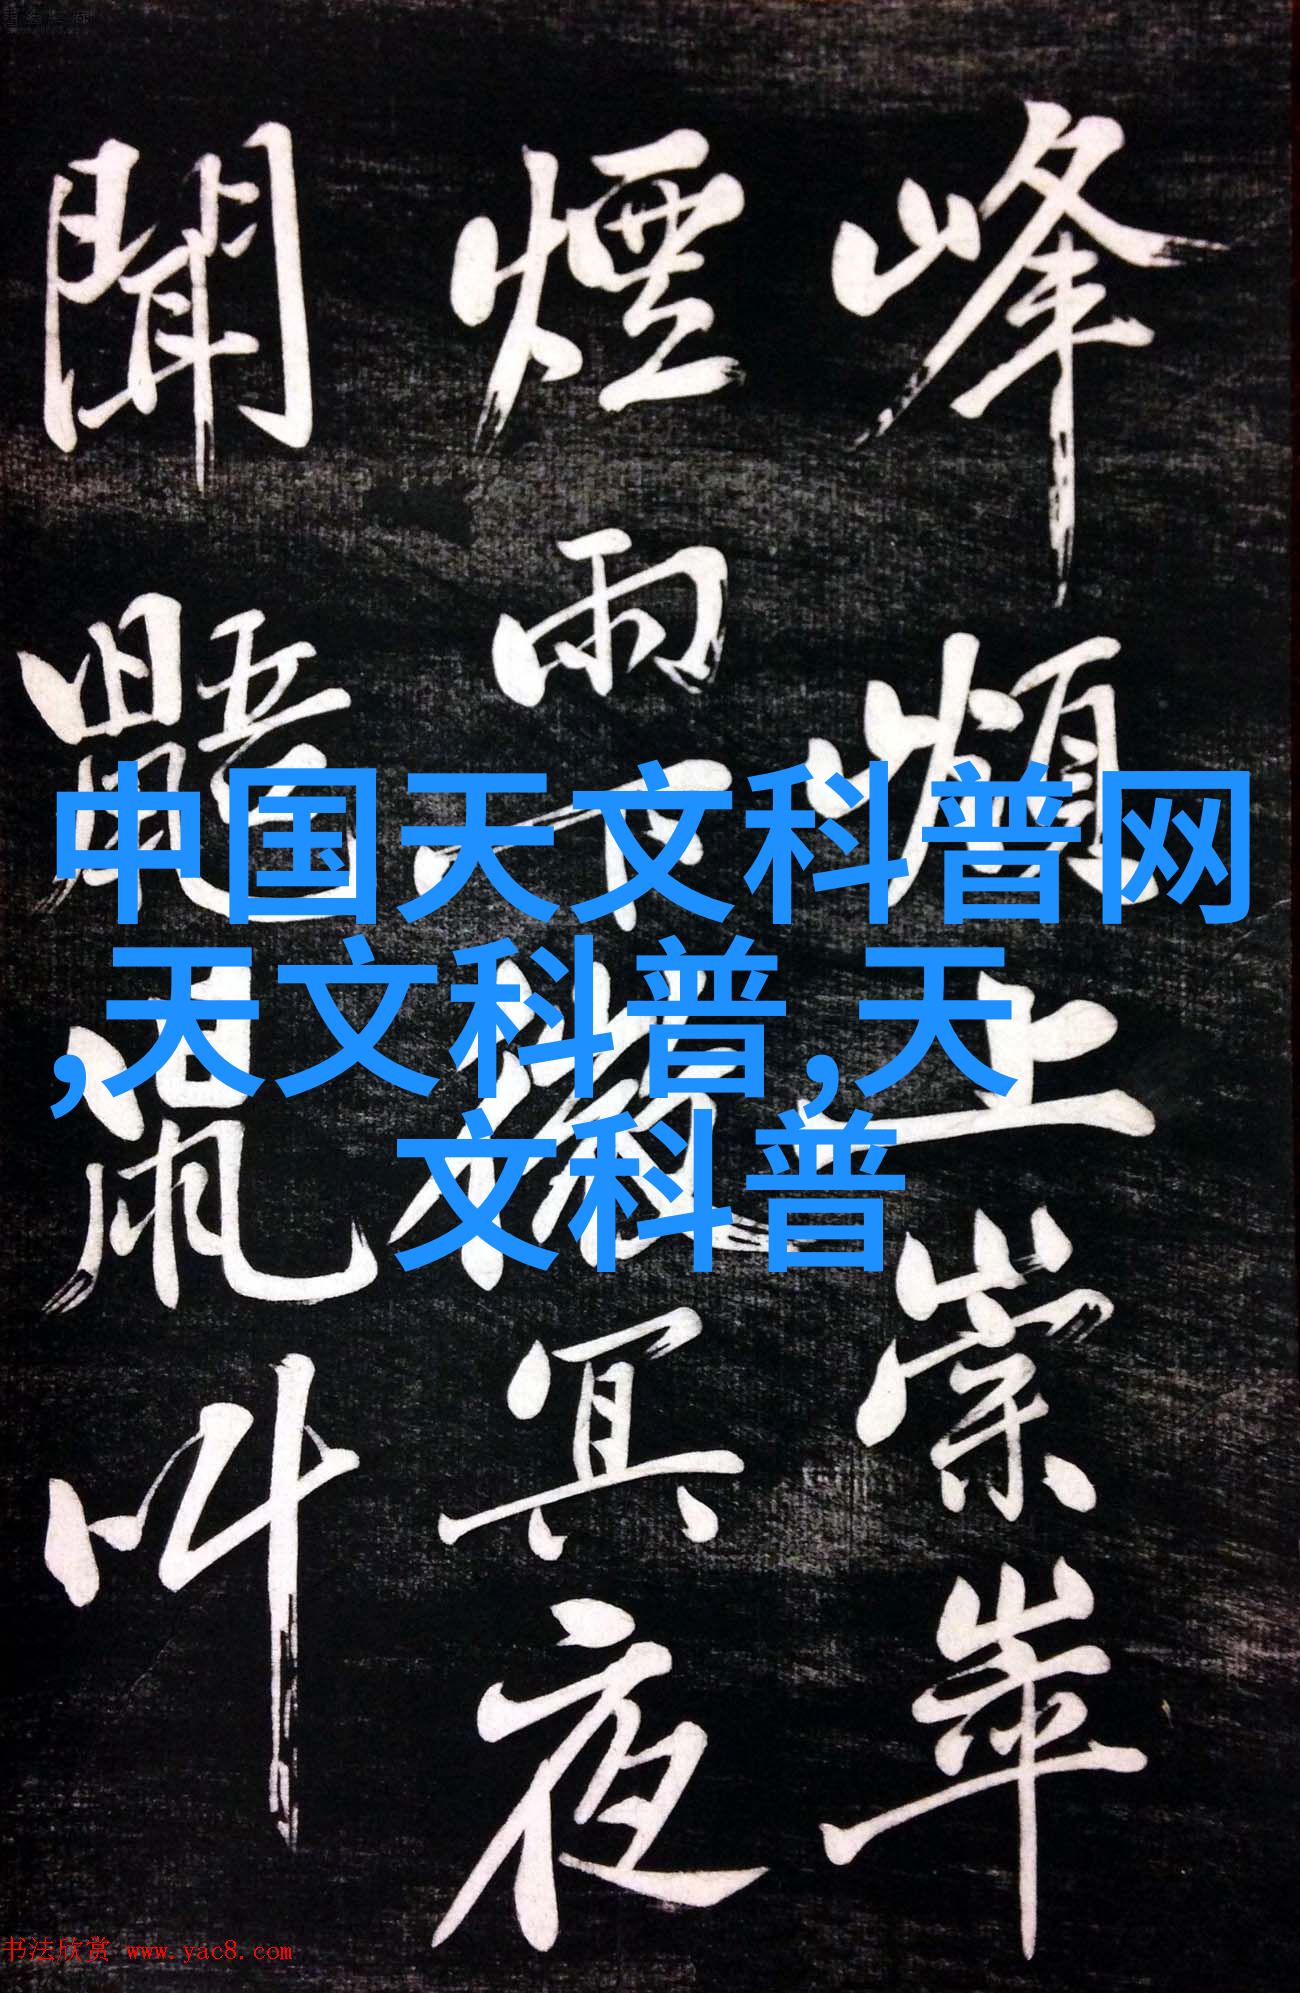 峰頫上崇崒
煙雨下微冥夜
聞鼯鼠叫
中国天文科普网
,天文科普,天
文科普
书法欣赏 www.yac8.com